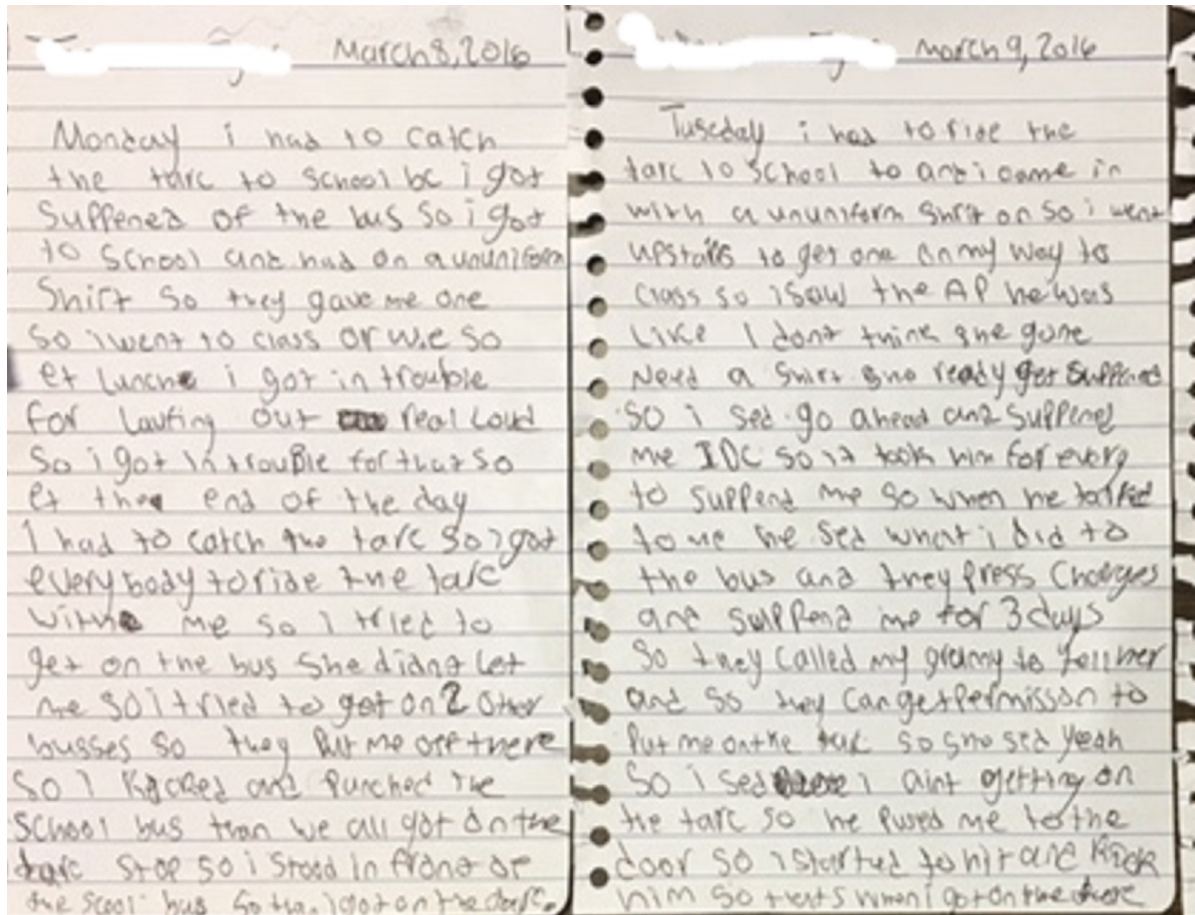 March 8, 2016
Monday i had to catch
the tarc to school bc i got
Suppened of the bus so i got
to school and had on a ununiform
Shirt so they gave me one
so i went to class or w.e so
et lunch i got in trouble
for laufing out real loud
So i got in trouble for that so
et the end of the day
I had to catch the tarc so i got
everybody to ride the tarc
with me so I tried to
get on the bus she didnt let
me so i tried to get on 2 other
busses so they put me off there
so I kicked and punched the
school bus than we all got on the
tarc stop so i stood in front of
the scool bus so i got on the tarc.
March 9, 2016
Tuseday i had to ride the
tarc to school to and i came in
with a ununiform shrit on so i went
upstairs to get one on my way to
class so i saw the AP he was
like I dont think she gone
need a shirt she ready get suppened
so i sed go ahead and suppened
me IDC so it took him for every
to suppend me so when he talked
to me he sed what i did to
the bus and they press charges
and suppend me for 3 days
so they called my granny to tell her
and so they can get permisson to
put me on the tarc so she sed yeah
so i sed i aint getting on
the tarc so he pused me to the
door so i started to hit and kick
him so thats when i got on the